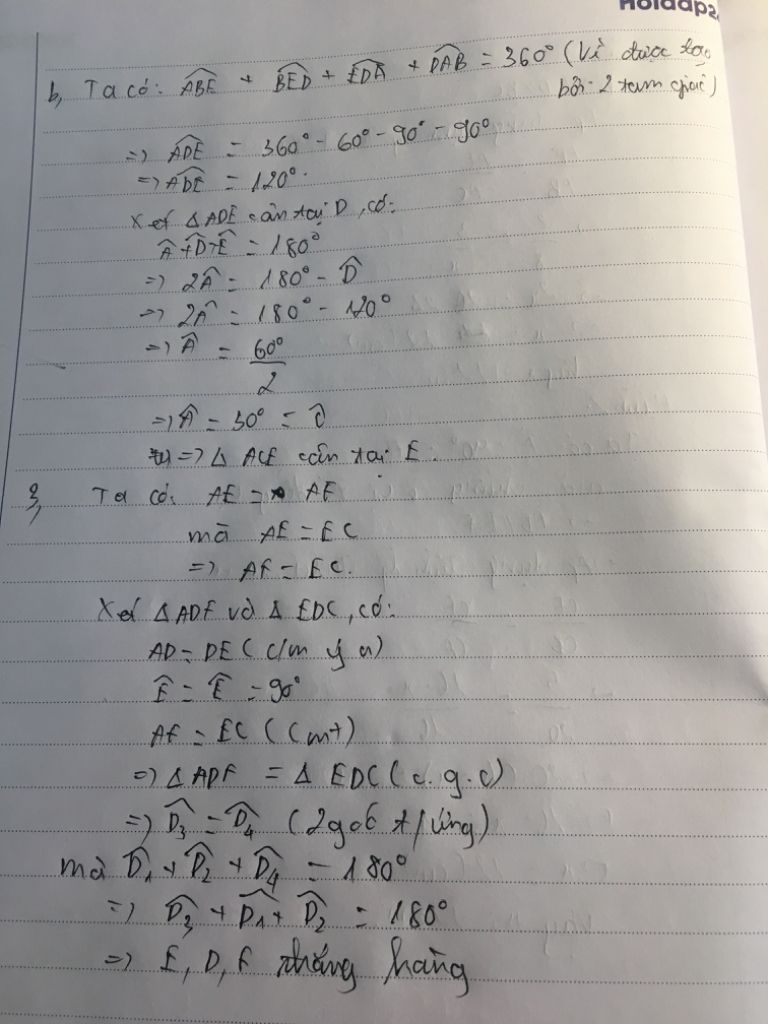 Hoidap2
b, Ta có: ABE + BED + EDA + DAB = 360° (Vì được tạo
bởi 2 tam giác)
=> ADE = 360° - 60° - 90° - 90°
=> ADE = 120°.
Xét △ADE cân tại D, có:
Â + D̂ + Ê = 180°
=> 2Â = 180° - D̂
=> 2Â = 180° - 120°
=> Â = 60°/2
=> Â = 30° = Ĉ
=> △ ACE cân tại E.
3, Ta có: AE = AF
mà AE = EC
=> AF = EC.
Xét △ADF và △ EDC, có:
AD = DE (c/m ý a)
Ê = Ê = 90°
AF = EC (cmt)
=> △ADF = △ EDC (c.g.c)
=> D̂₃ = D̂₄ (2 góc t/ứng)
mà D̂₁ + D̂₂ + D̂₄ = 180°
=> D̂₃ + D̂₁ + D̂₂ = 180°
=> E, D, F thẳng hàng